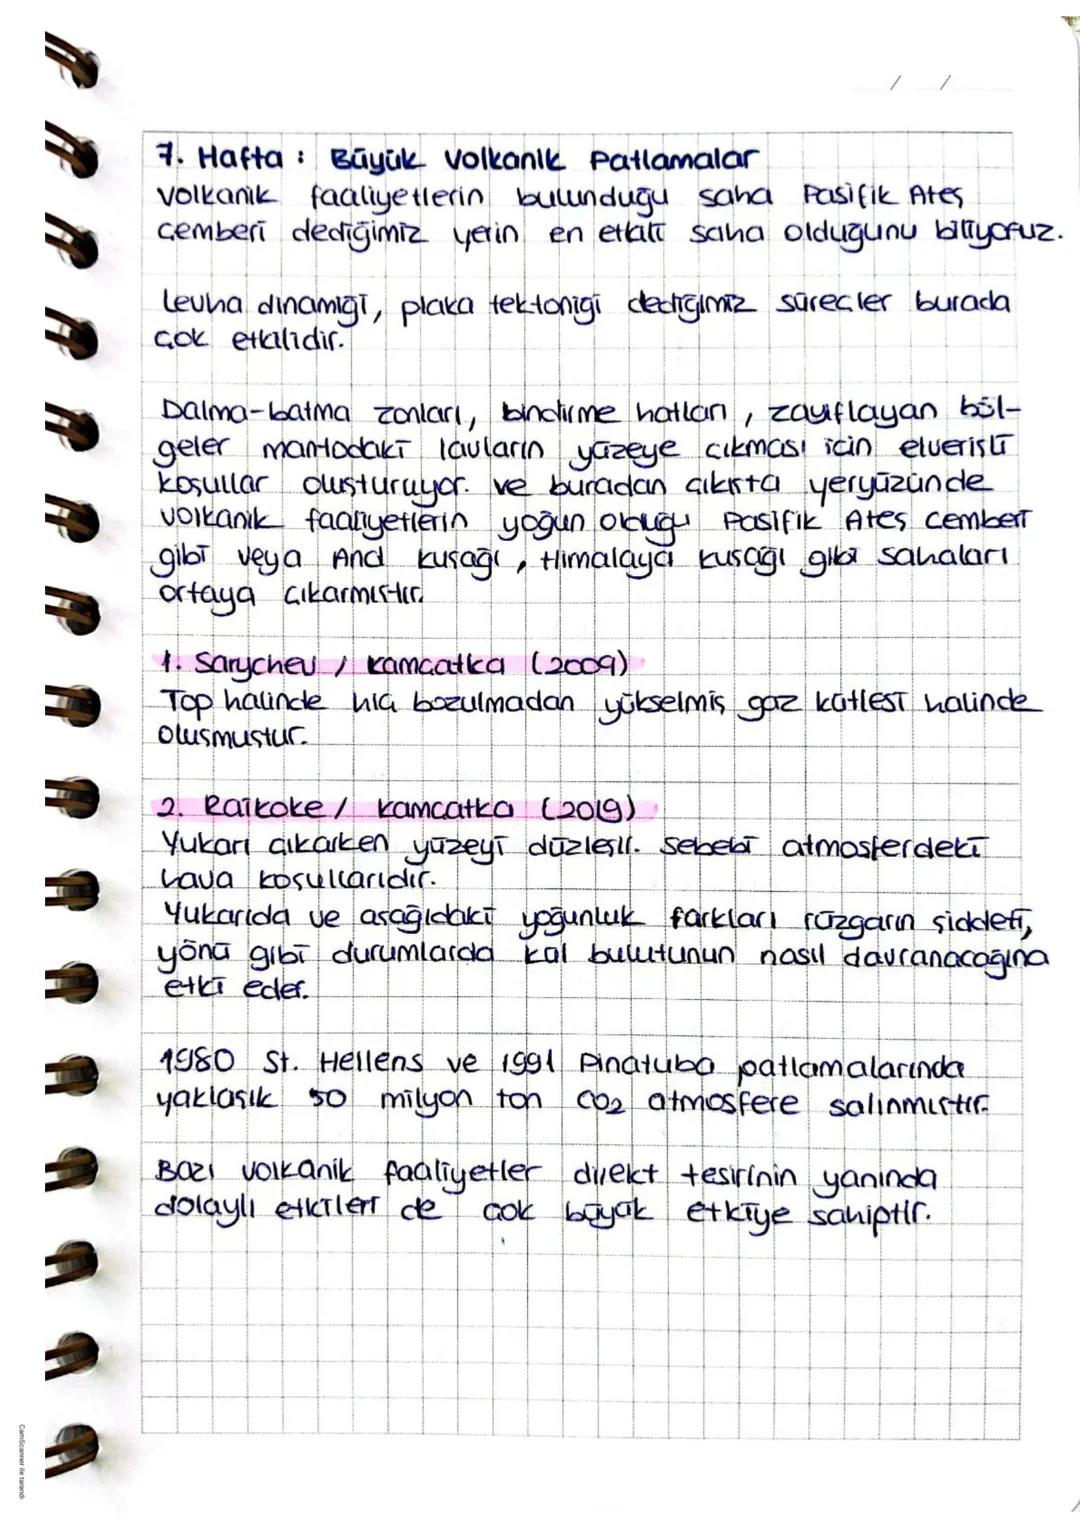 / /
7. Hafta : Büyük Volkanik Patlamalar
Volkanik faaliyetlerin bulunduğu saha Pasifik Ateş
çemberi dediğimiz yerin en etkili saha olduğunu biliyoruz.
Levha dinamiği, plaka tektoniği dediğimiz süreçler burada
çok etkilidir.
Dalma-batma zonları, bindirme hatları, zayıflayan böl-
geler mantodaki lavların yüzeye çıkması için elverişli
koşullar oluşturuyor. ve buradan çıkışta yeryüzünde
volkanik faaliyetlerin yoğun olduğu Pasifik Ateş çemberi
gibi veya And kuşağı, Himalaya kuşağı gibi sahaları
ortaya çıkarmıştır.
1. Sarychev / kamçatka (2009)
Top halinde hiç bozulmadan yükselmiş gaz kütlesi halinde
oluşmuştur.
2. Raikoke / kamçatka (2019)
Yukarı çıkarken yüzeyi düzleşir. sebebi atmosferdeki
hava koşullarıdır.
Yukarıda ve aşağıdaki yoğunluk farkları rüzgarın şiddeti,
yönü gibi durumlarda kül bulutunun nasıl davranacağına
etki eder.
1980 St. Hellens ve 1991 Pinatuba patlamalarında
yaklaşık 50 milyon ton CO2 atmosfere salınmıştır.
Bazı volkanik faaliyetler direkt tesirinin yanında
dolaylı etkileri de çok büyük etkiye sahiptir.
CamScanner ile tarandı